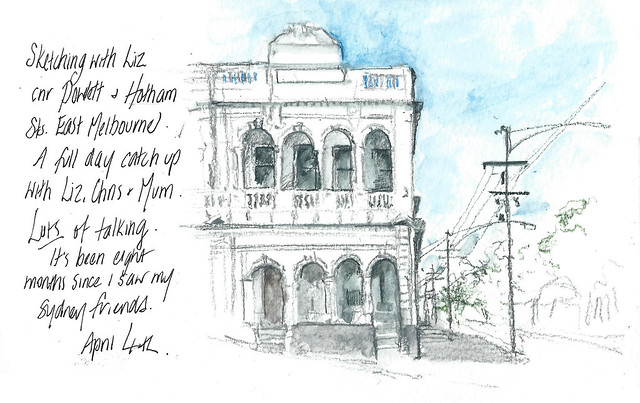 Sketching with Liz
cnr Powlett + Hotham
Sts. East Melbourne.
A full day catch up
with Liz, Chris + Mum.
Lots of talking.
It's been eight
months since I saw my
Sydney friends.
April